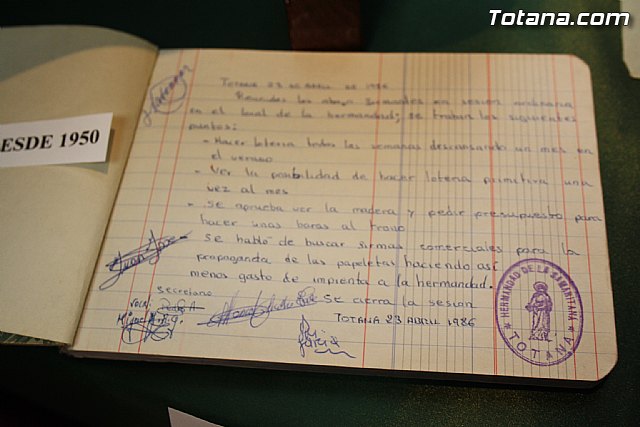 Totana.com
ESDE 1950
TOTANA 23 DE ABRIL DE 1986
Reunidos los abajo firmantes en sesión ordinaria
en el local de la hermandad; se tratan los siguientes
puntos:
- Hacer loteria todas las semanas descansando un mes en
el verano
- Ver la posibilidad de hacer loteria primitiva una
vez al mes
- Se aprueba ver la madera y pedir presupuesto para
hacer unas baras al trono
- Se habló de buscar firmas comerciales para la
propaganda de las papeletas haciendo así
menos gasto de imprenta a la hermandad.
Se cierra la sesión
TOTANA 23 ABRIL 1986
secretario
Vocal
HERMANDAD DE LA SAMARITANA
TOTANA